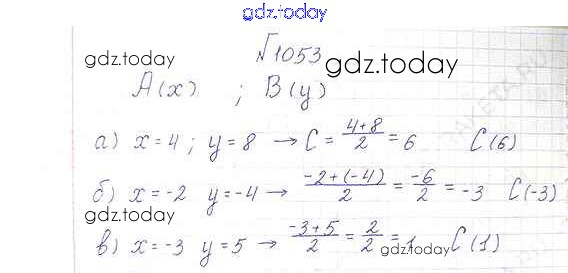 gdz.today
№1053
gdz.today
gdz.today
A(x) ; B(y)
а) x=4; y=8 → C = (4+8)/2 = 6 C(6)
б) x=-2 y=-4 → (-2+(-4))/2 = -6/2 = -3 C(-3)
gdz.today
в) x=-3 y=5 → (-3+5)/2 = 2/2 = 1 C(1)
gdz.today